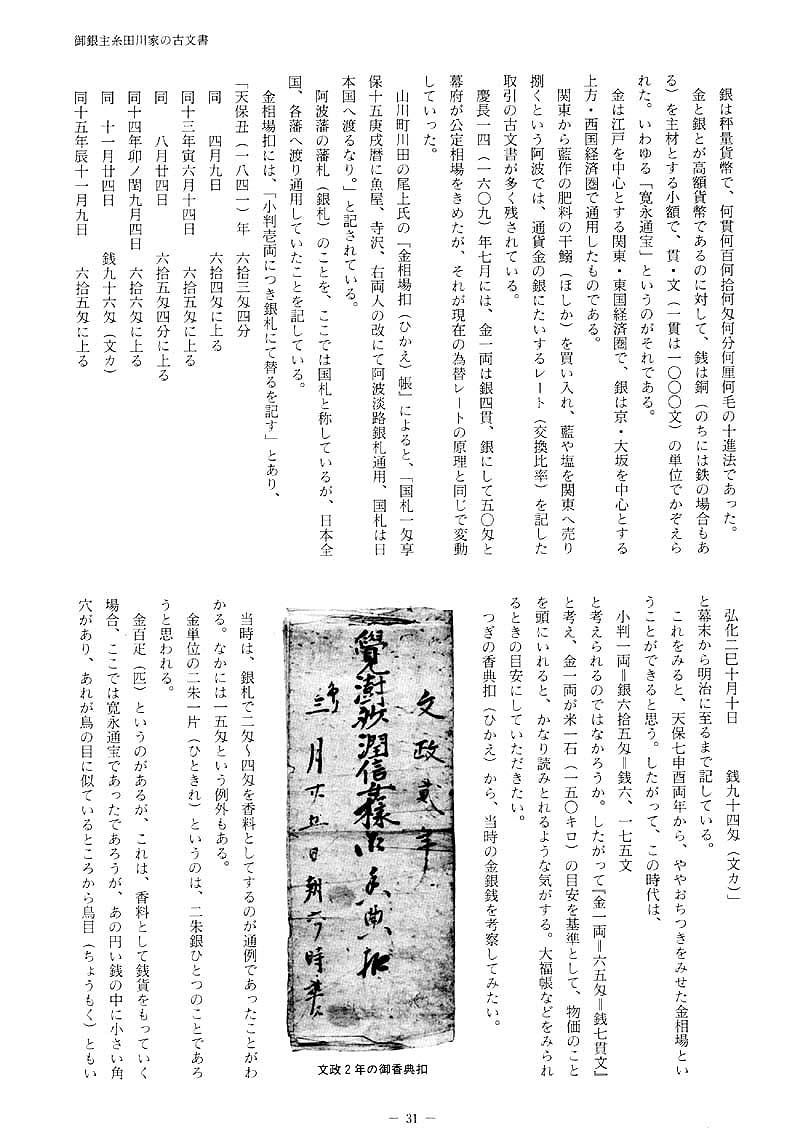 御銀主糸田川家の古文書
銀は秤量貨幣で、何貫何百何拾何匁何分何厘何毛の十進法であった。
金と銀とが高額貨幣であるのに対して、銭は銅（のちには鉄の場合もあ
る）を主材とする小額で、貫・文（一貫は一〇〇〇文）の単位でかぞえら
れた。いわゆる「寛永通宝」というのがそれである。
金は江戸を中心とする関東・東国経済圏で、銀は京・大坂を中心とする
上方・西国経済圏で通用したものである。
関東から藍作の肥料の干鰯（ほしか）を買い入れ、藍や塩を関東へ売り
捌くという阿波では、通貨金の銀にたいするレート（交換比率）を記した
取引の古文書が多く残されている。
慶長一四（一六〇九）年七月には、金一両は銀四貫、銀にして五〇匁と
幕府が公定相場をきめたが、それが現在の為替レートの原理と同じで変動
していった。
山川町川田の尾上氏の「金相場扣（ひかえ）帳』によると、「国札一匁享
保十五庚戌暦に魚屋、寺沢、右両人の改にて阿波淡路銀札通用、国札は日
本国へ渡るなり。」と記されている。
阿波藩の藩札（銀札）のことを、ここでは国札と称しているが、日本全
国、各藩へ渡り通用していたことを記している。
金相場扣には、「小判壱両につき銀札にて替るを記す」とあり、
「天保丑（一八四一）年　六拾三匁四分
同　四月九日　六拾四匁に上る
同十三年寅六月十四日　六拾五匁に上る
同　八月廿四日　六拾五匁四分に上る
同十四年卯ノ閏九月四日　六拾六匁に上る
同　十一月廿四日　銭九十六匁（文カ）
同十五年辰十一月九日　六拾五匁に上る
弘化二巳十月十日　銭九十四匁（文カ）」
と幕末から明治に至るまで記している。
これをみると、天保七申酉両年から、ややおちつきをみせた金相場とい
うことができると思う。したがって、この時代は、
小判一両＝銀六拾五匁＝銭六、一七五文
と考えられるのではなかろうか。したがって『金一両＝六五匁＝銭七貫文』
と考え、金一両が米一石（一五〇キロ）の目安を基準として、物価のこと
を頭にいれると、かなり読みとれるような気がする。大福帳などをみられ
るときの目安にしていただきたい。
つぎの香典扣（ひかえ）から、当時の金銀銭を考察してみたい。
文政貳年
御香典扣
文政2年の御香典扣
当時は、銀札で二匁〜四匁を香料としてするのが通例であったことがわ
かる。なかには一五匁という例外もある。
金単位の二朱一片（ひときれ）というのは、二朱銀ひとつのことであろ
うと思われる。
金百疋（匹）というのがあるが、これは、香料として銭貨をもっていく
場合、ここでは寛永通宝であったであろうが、あの円い銭の中に小さい角
穴があり、あれが鳥の目に似ているところから鳥目（ちょうもく）ともい
― 31 ―